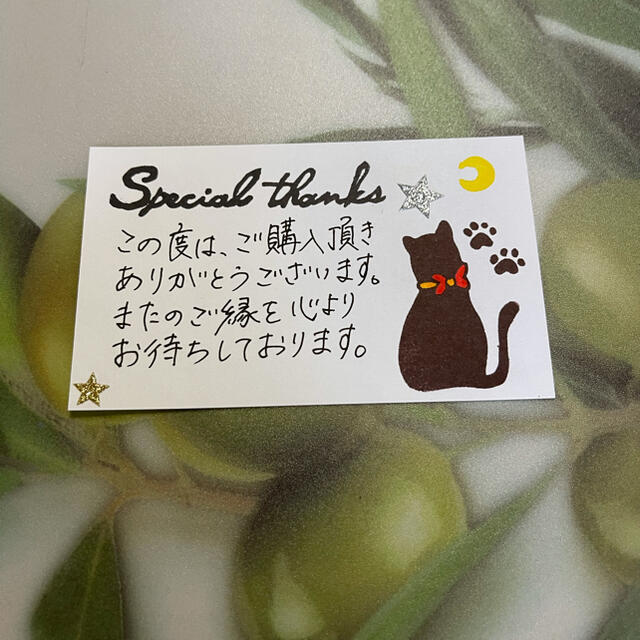 Special thanks
この度は、ご購入頂き
ありがとうございます。
またのご縁を心より
お待ちしております。